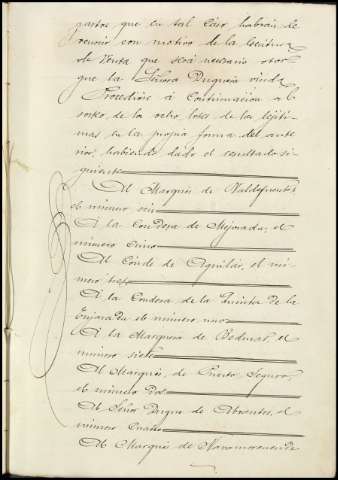 partes que en tal caso habrán de
reunir con motivo de la escritura
de Venta que será necesario otor
gue la Señora Duquesa viuda
Procedióse á continuacion al
sorteo de los ocho lotes de las legiti-
mas en la propia forma del ante
rior, habiendo dado el resultado si-
guiente
Al Marqués de Valdefuentes
el número seis
A la Condesa de Mejorada, el
número cinco
Al Conde de Aguilar, el nú-
mero tres
A la Condesa de la Quinta de la
Enjarada el número uno
A la Marquesa de Bedmar, el
número siete
Al Marqués de Puerto Seguro,
el número dos
Al Señor Duque de Abrantes, el
número cuatro
Al Marqués de Navamorcuende